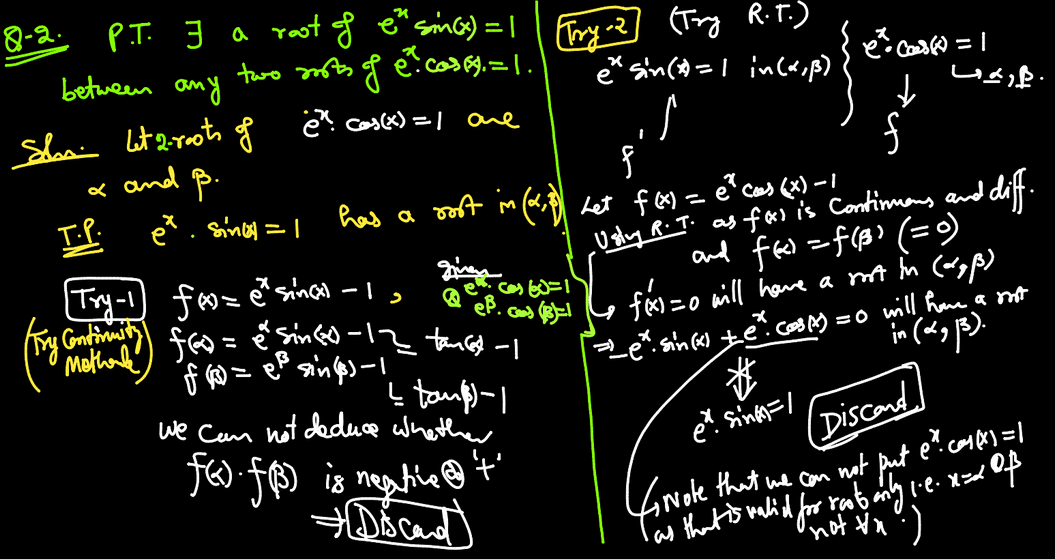 Q-2. P.T. ∃ a root of eˣ sin(x) = 1
between any two roots of eˣ. cos(x). = 1.
Soln. Let 2-roots of eˣ. cos(x) = 1 are
α and β.
T.P. eˣ . sin(x) = 1 has a root in (α, β)
Try-1 f(x) = eˣ sin(x) - 1 ,
given
eᵅ. cos(α) = 1
eᵝ. cos(β) = 1
(Try Continuity
Methode)
f(α) = eᵅ sin(α) - 1 tan(α) - 1
f(β) = eᵝ sin(β) - 1
tan(β) - 1
we can not deduce whether
f(α) . f(β) is negtive or '+'
⇒ Discard
Try-2 (Try R.T.)
eˣ sin(x) = 1 in (α, β)
f'
eˣ. cos(x) = 1
α, β.
f
Let f(x) = eˣ cos(x) - 1
Using R.T. as f(x) is Continuous and diff.
and f(α) = f(β) (= 0)
f'(x) = 0 will have a root in (α, β)
⇒ -eˣ. sin(x) + eˣ. cos(x) = 0 will have a root
in (α, β).
eˣ. sin(x) = 1
Discard
(Note that we can not put eˣ. cos(x) = 1
as that is valid for roots only i.e. x = α or β
not ∀x.)